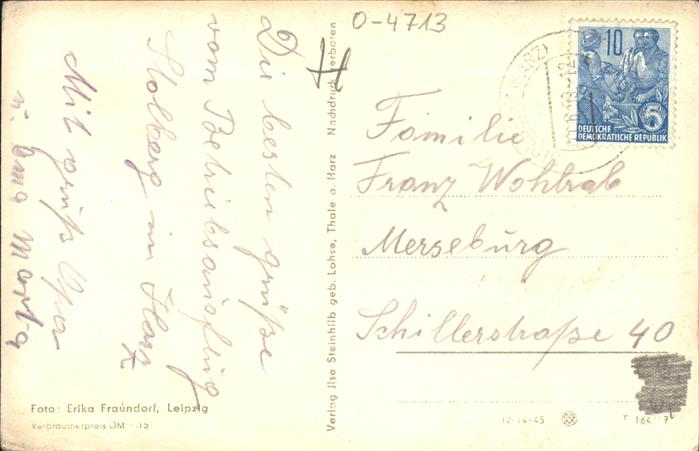 O-4713
Die besten grüße
vom Betriebsausflug
Stolberg im Harz
Mit grüß Opa
u. Oma Marta
Foto: Erika Fraundorf, Leipzig
Verbraucherpreis DM -.15
Verlag Ilse Steinhilb geb. Lohse, Thale a. Harz Nachdruck verboten
10
5
DEUTSCHE
DEMOKRATISCHE REPUBLIK
Familie
Franz Wohlrab
Merseburg
Schillerstraße 40
T 164 7